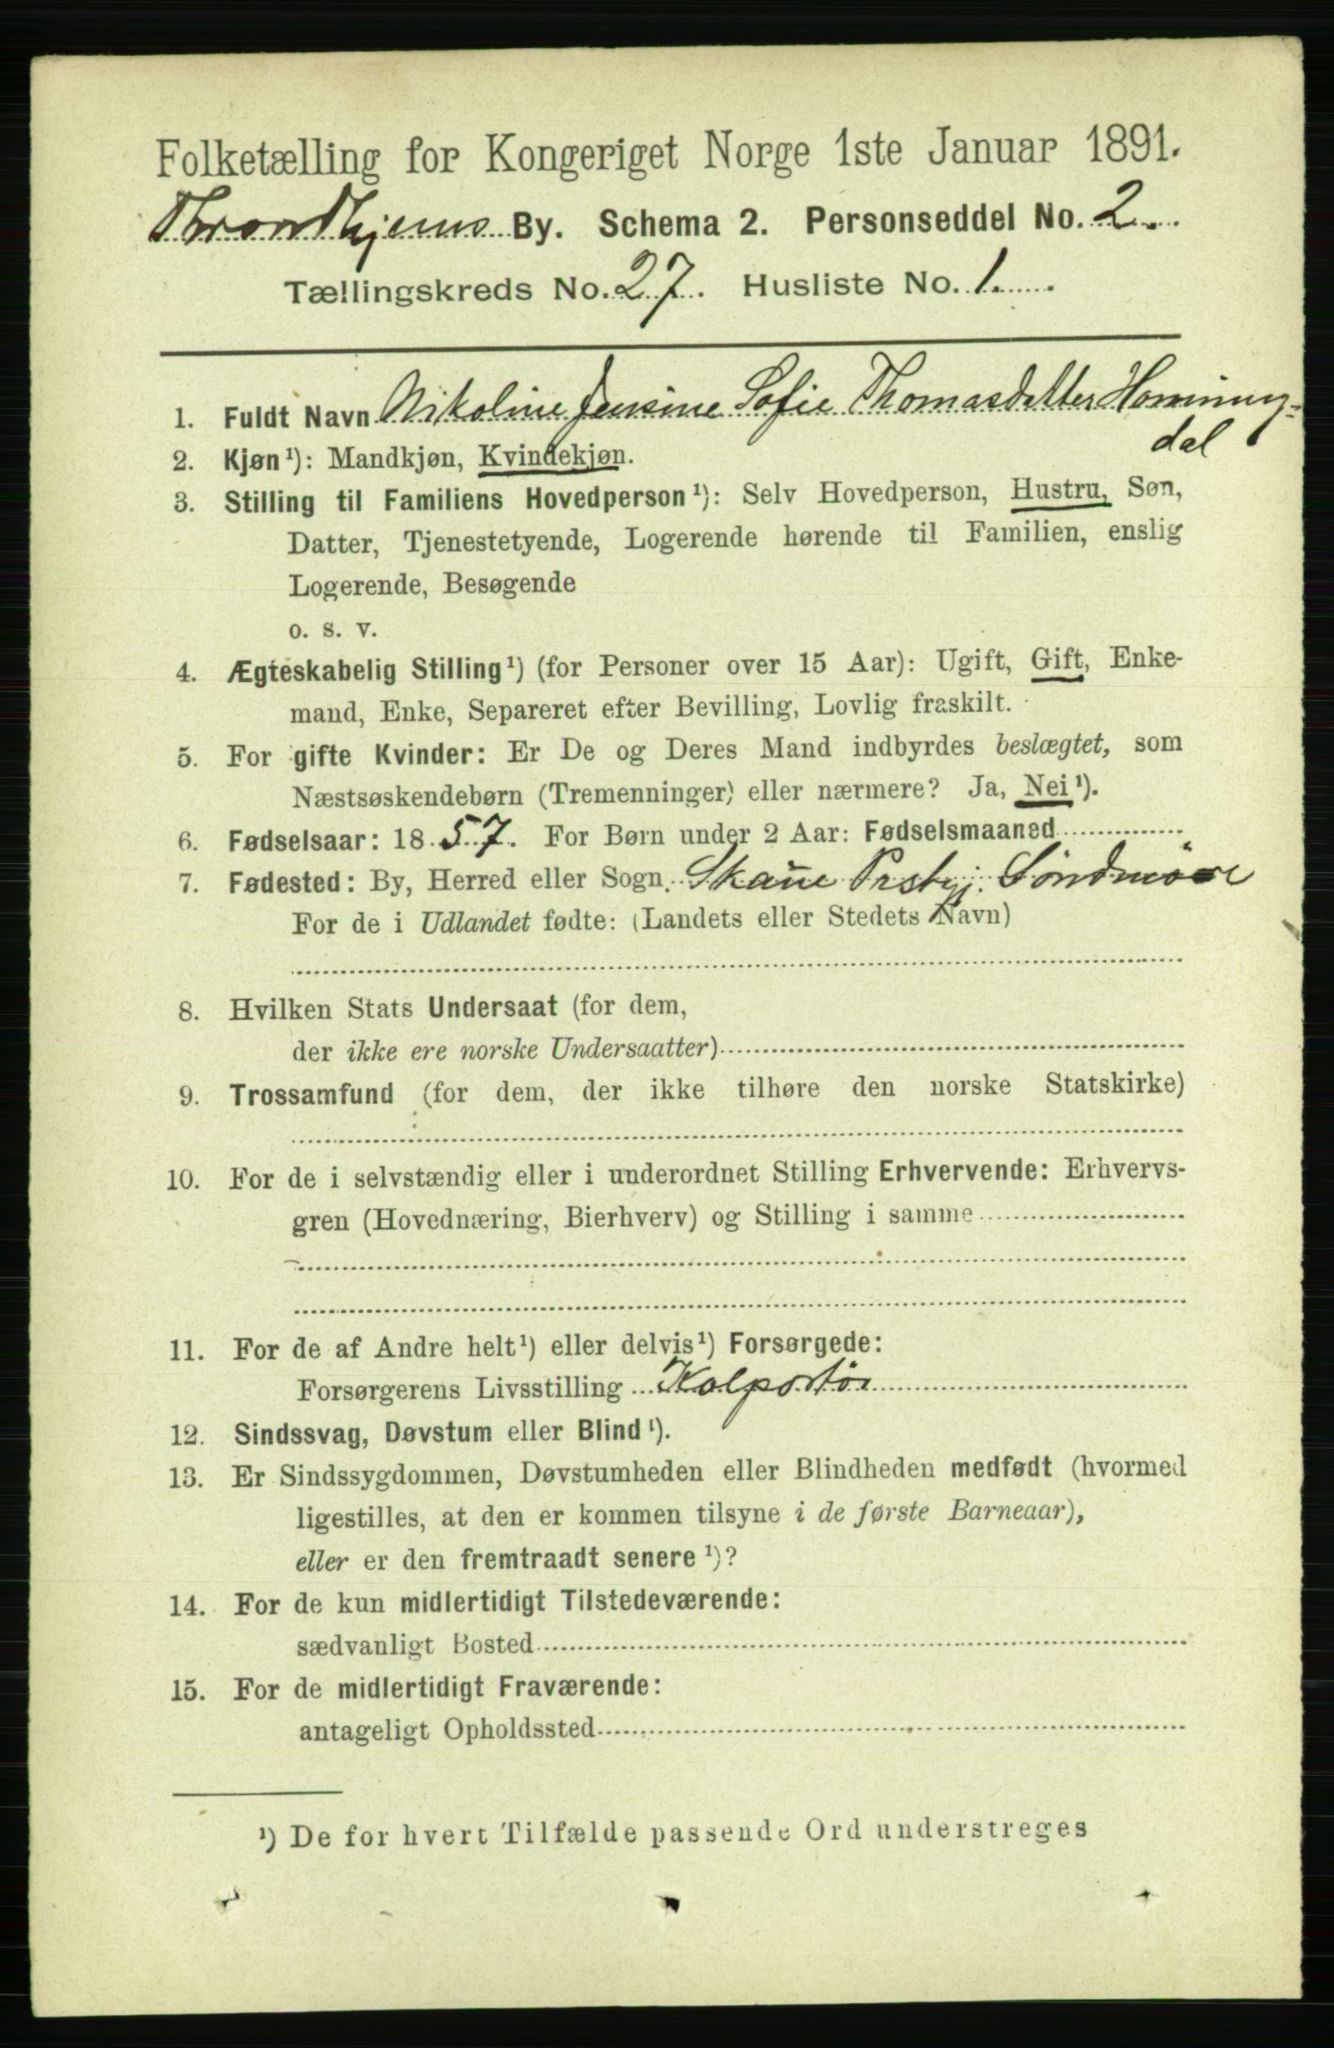 Folketælling for Kongeriget Norge 1ste Januar 1891.
Throndhjems By. Schema 2. Personseddel No. 2.
Tællingskreds No. 27. Husliste No. 1.
1. Fuldt Navn Nikoline Jensine Sofie Thomasdatter Horning=
dal
2. Kjøn¹): Mandkjøn, Kvindekjøn.
3. Stilling til Familiens Hovedperson¹): Selv Hovedperson, Hustru, Søn,
Datter, Tjenestetyende, Logerende hørende til Familien, enslig
Logerende, Besøgende
o. s. v.
4. Ægteskabelig Stilling¹) (for Personer over 15 Aar): Ugift, Gift, Enke-
mand, Enke, Separeret efter Bevilling, Lovlig fraskilt.
5. For gifte Kvinder: Er De og Deres Mand indbyrdes beslægtet, som
Næstsøskendebørn (Tremenninger) eller nærmere? Ja, Nei¹).
6. Fødselsaar: 1857. For Børn under 2 Aar: Fødselsmaaned
7. Fødested: By, Herred eller Sogn. Skaue Prstgj. Söndmöre
For de i Udlandet fødte: (Landets eller Stedets Navn)
8. Hvilken Stats Undersaat (for dem,
der ikke ere norske Undersaatter)
9. Trossamfund (for dem, der ikke tilhøre den norske Statskirke)
10. For de i selvstændig eller i underordnet Stilling Erhvervende: Erhvervs-
gren (Hovednæring, Bierhverv) og Stilling i samme
11. For de af Andre helt¹) eller delvis¹) Forsørgede:
Forsørgerens Livsstilling Kolportör
12. Sindssvag, Døvstum eller Blind¹).
13. Er Sindssygdommen, Døvstumheden eller Blindheden medfødt (hvormed
ligestilles, at den er kommen tilsyne i de første Barneaar),
eller er den fremtraadt senere¹)?
14. For de kun midlertidigt Tilstedeværende:
sædvanligt Bosted
15. For de midlertidigt Fraværende:
antageligt Opholdssted
¹) De for hvert Tilfælde passende Ord understreges